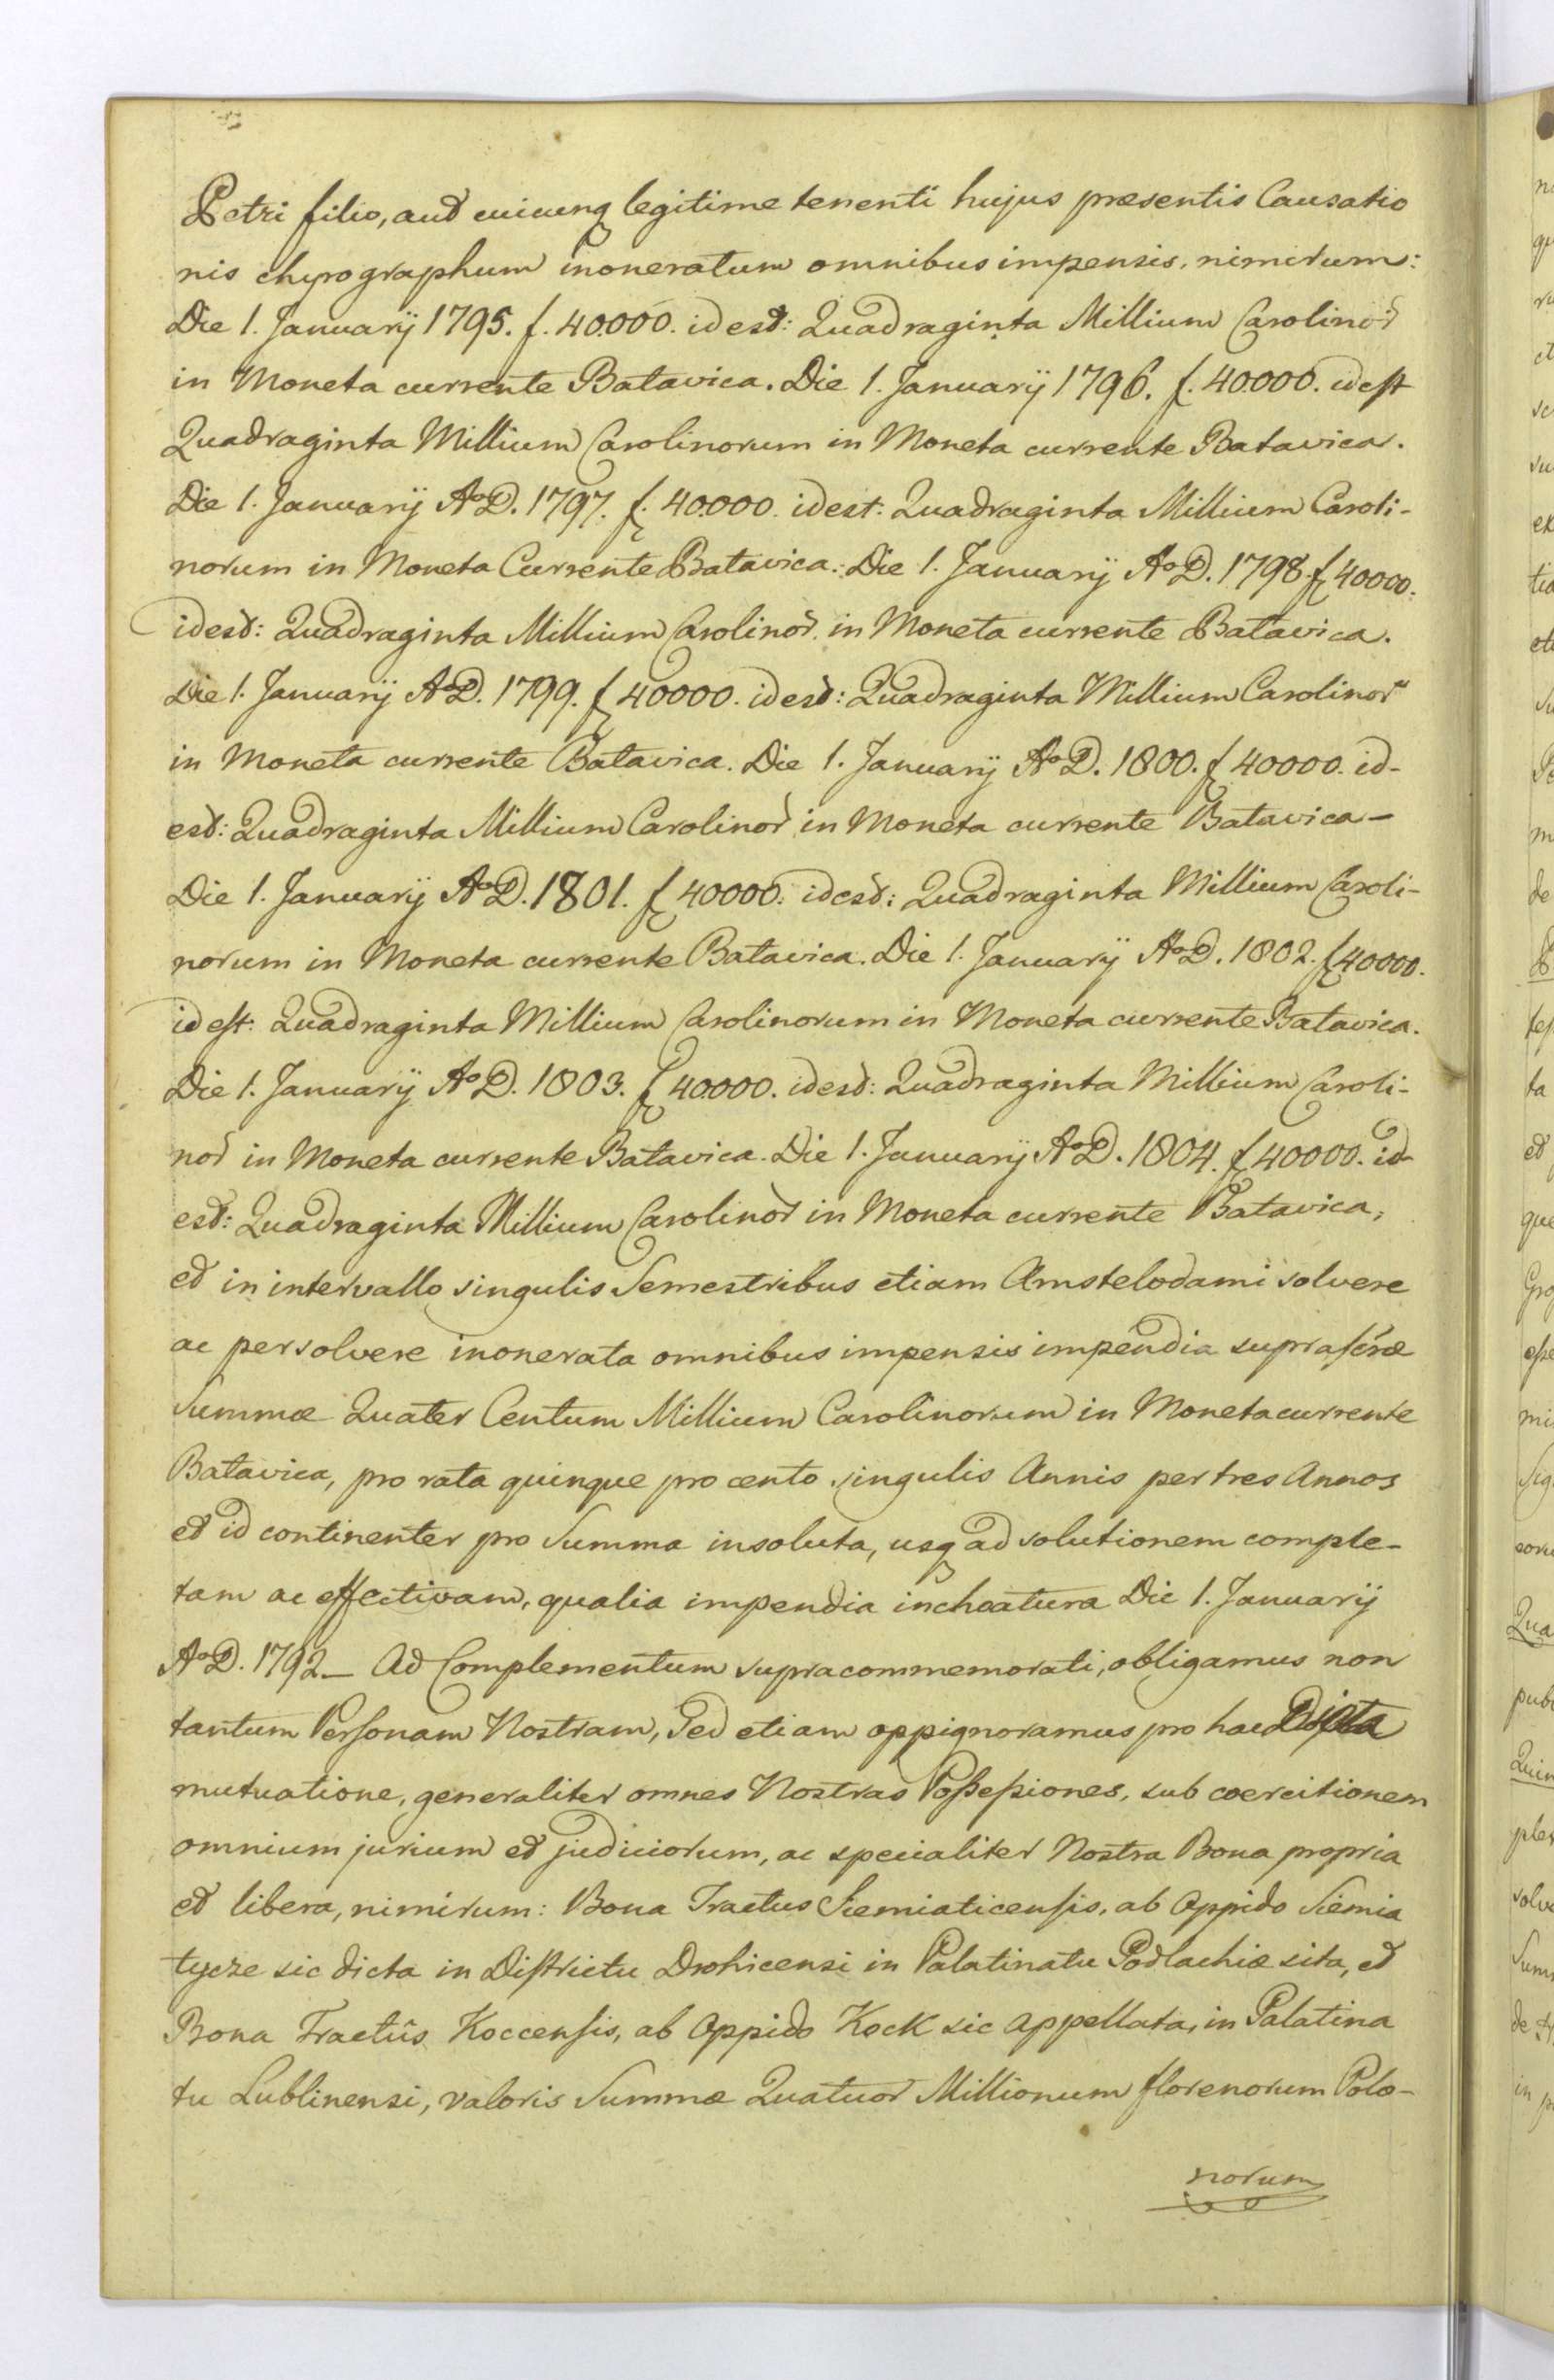 Petri filio, aut cuicunq legitime tenenti hujus præsentis Causatio
nis chyrographum inoneratum omnibus impensis, nimirum:
Die 1. Januarij 1795. f. 40.000. id est: Quadraginta Millium Carolinor
in Moneta currente Batavica. Die 1. Januarij 1796. f. 40.000. id est
Quadraginta Millium Carolinorum in Moneta currente Batavica.
Die 1. Januarij AoD. 1797. f. 40.000. idest: Quadraginta Millium Caroli-
norum in Moneta Currente Batavica: Die 1. Januarij AoD. 1798 f 40000.
idest: Quadraginta Millium Carolinor. in Moneta currente Batavica.
Die 1. Januarij AoD. 1799. f 40000. idest: Quadraginta Millium Carolinor
in Moneta currente Batavica. Die 1. Januarij AoD. 1800. f 40000. id-
est: Quadraginta Millium Carolinor in Moneta currente Batavica-
Die 1. Januarij AoD. 1801. f 40000. idest: Quadraginta Millium Caroli-
norum in Moneta currente Batavica. Die 1. Januarij AoD. 1802. f 40000.
id est: Quadraginta Millium Carolinorum in Moneta currente Batavica.
Die 1. Januarij AoD. 1803. f 40.000. idest: Quadraginta Millium Caroli-
nor in Moneta currente Batavica. Die 1. Januarij AoD. 1804. f 40000. id-
est: Quadraginta Millium Carolinor in Moneta currente Batavica,
et in intervallo singulis Semestribus etiam Amstelodami solvere
ac persolvere inonerata omnibus impensis impendia suprascræ
Summæ Quater Centum Millium Carolinorum in Moneta currente
Batavica, pro rata quinque pro cento singulis Annis per tres Annos
et id continenter pro Summa insoluta, usq ad solutionem comple-
tam ac effectivam, qualia impendia inchoatura Die 1. Januarij
AoD. 1792_ Ad Complementum supracommemorati, obligamus non
tantum Personam Nostram, Sed etiam oppignoramus pro hac Dicta
mutuatione, generaliter omnes Nostras Possessiones, sub coercitionem
omnium jurium et judiciorum, ac specialiter Nostra Bona propria
et libera, nimirum: Bona Tractus Siemiaticensis, ab Oppido Siemia
tycze sic dicta in Districtu Drohicensi in Palatinatu Podlachiæ sita, et
Bona Tractûs Koccensis, ab Oppido Kock sic appellata, in Palatina
tu Lublinensi, valoris Summæ Quatuor Millionum florenorum Polo-
norum